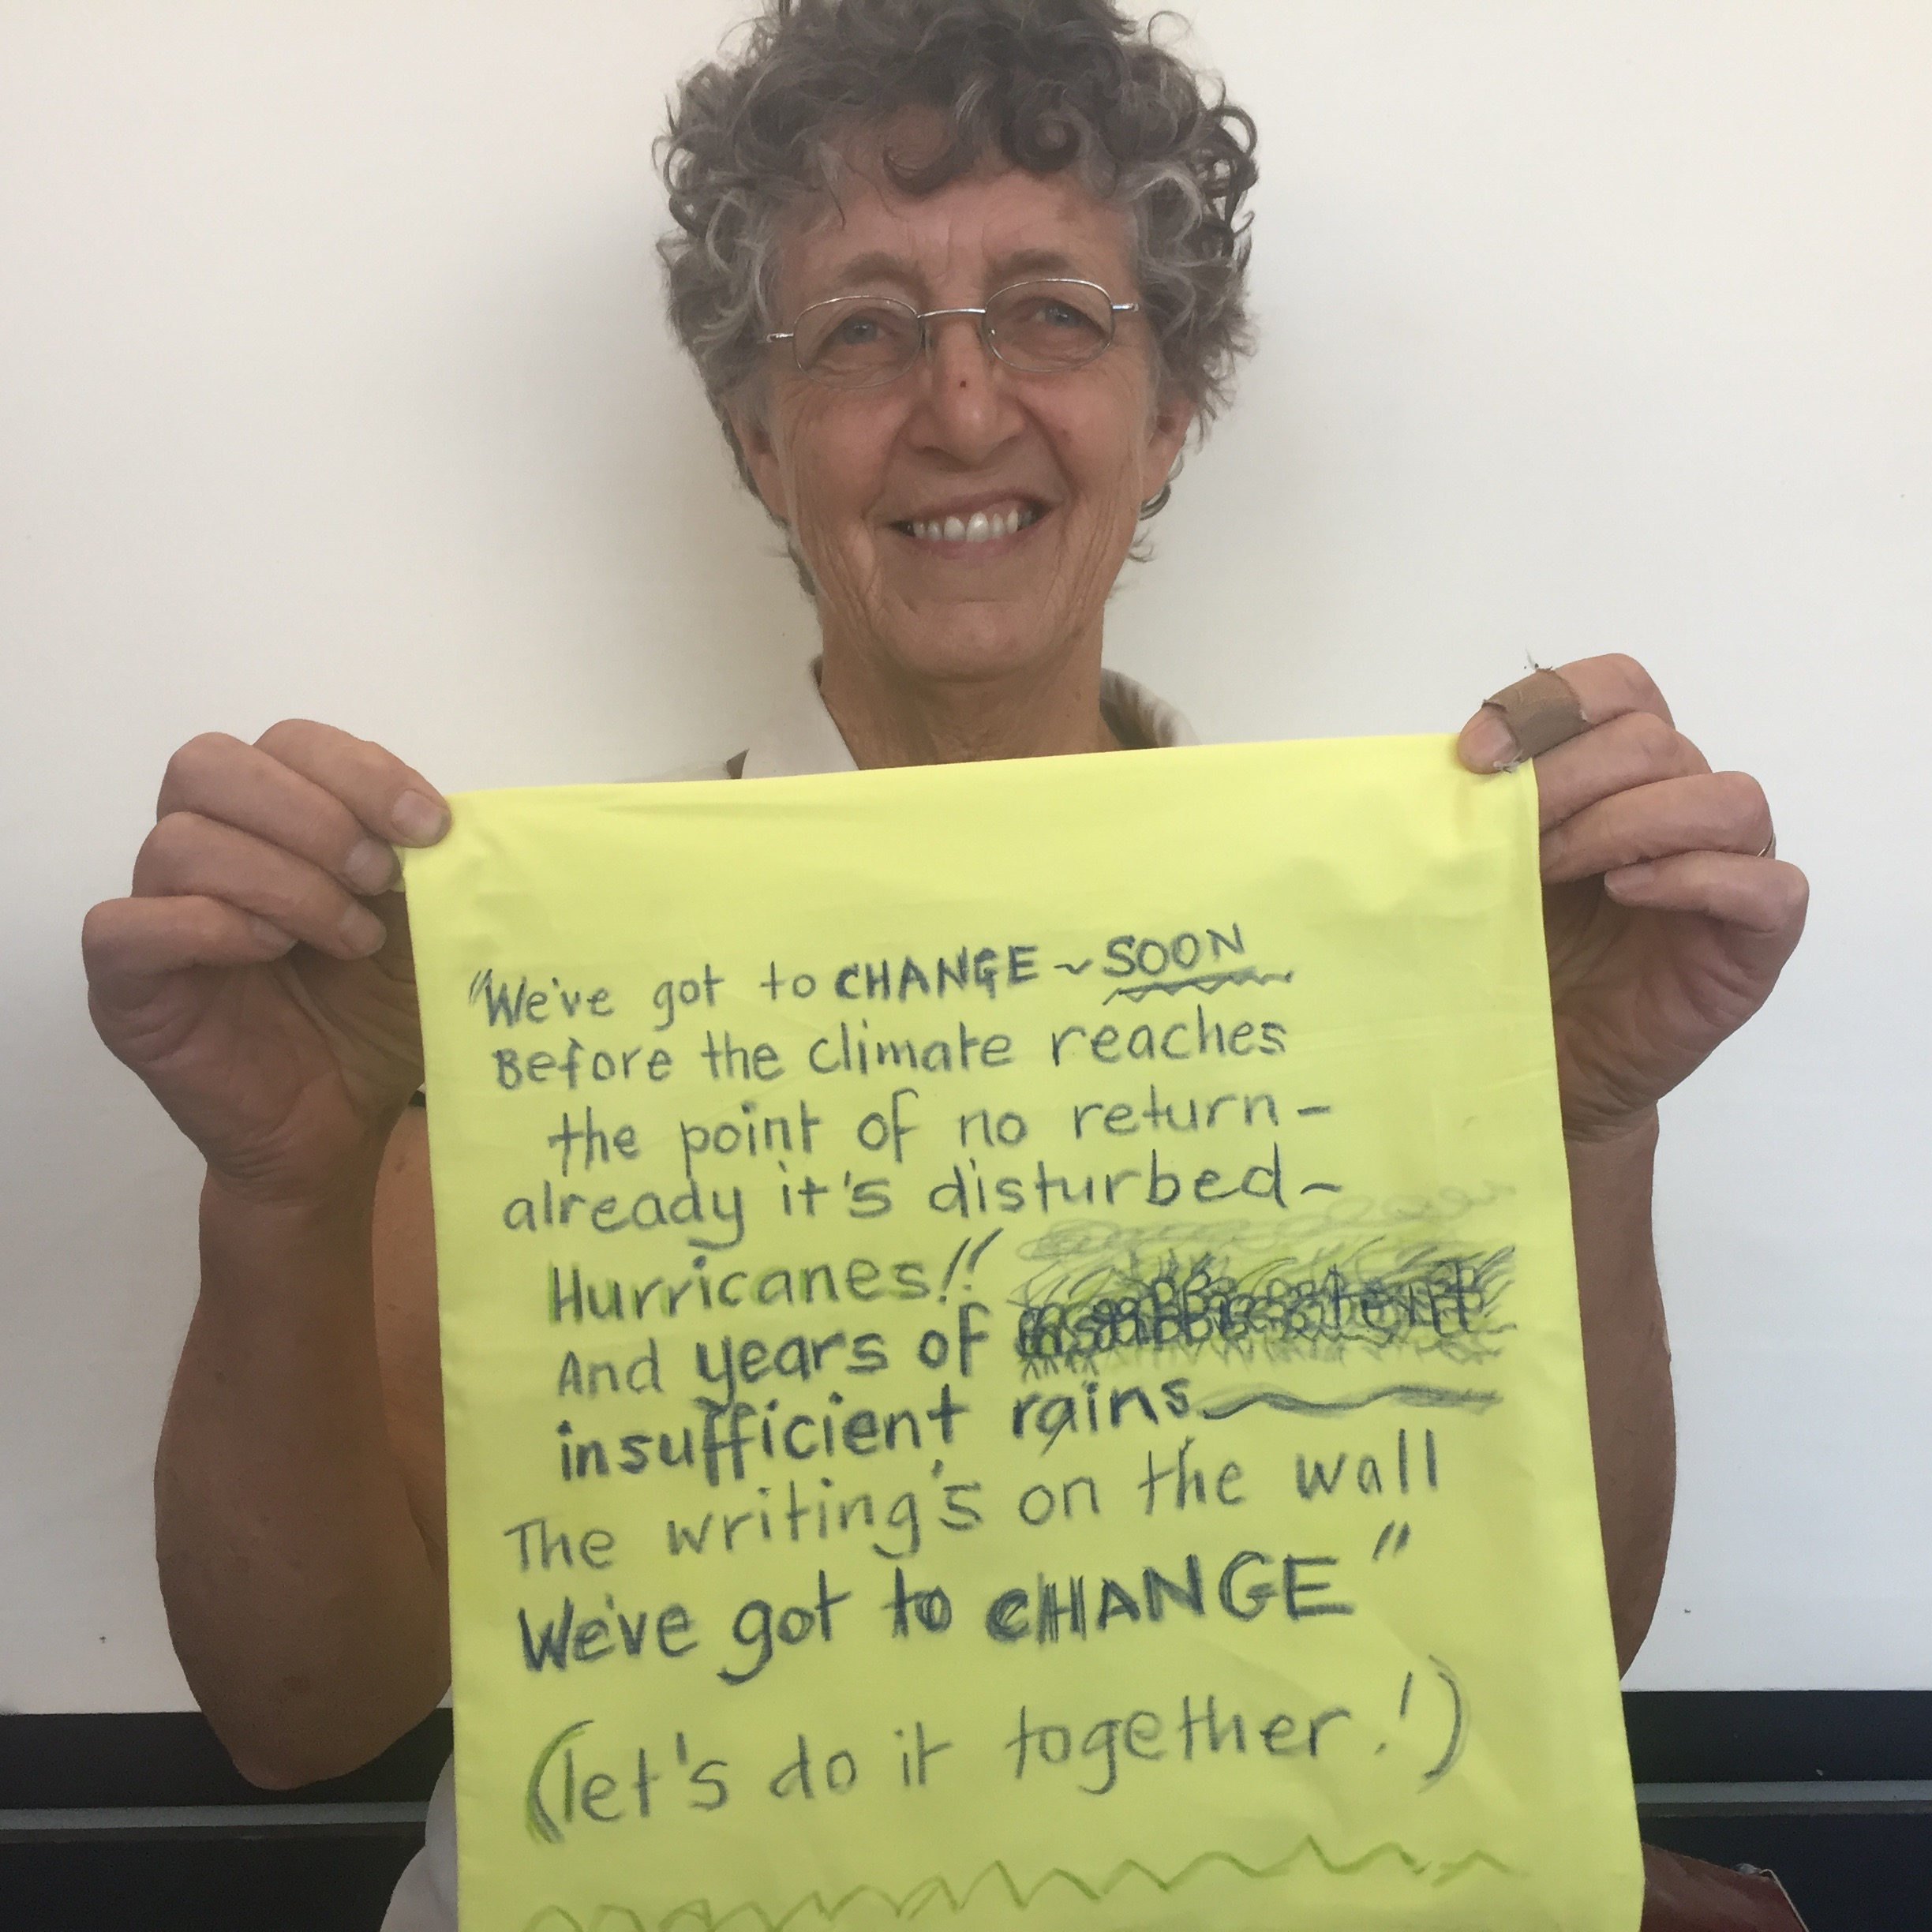 "We've got to CHANGE ~ SOON
Before the climate reaches
the point of no return -
already it's disturbed ~
Hurricanes!!
And years of
insufficient rains
The writing's on the wall
We've got to CHANGE"
(let's do it together!)